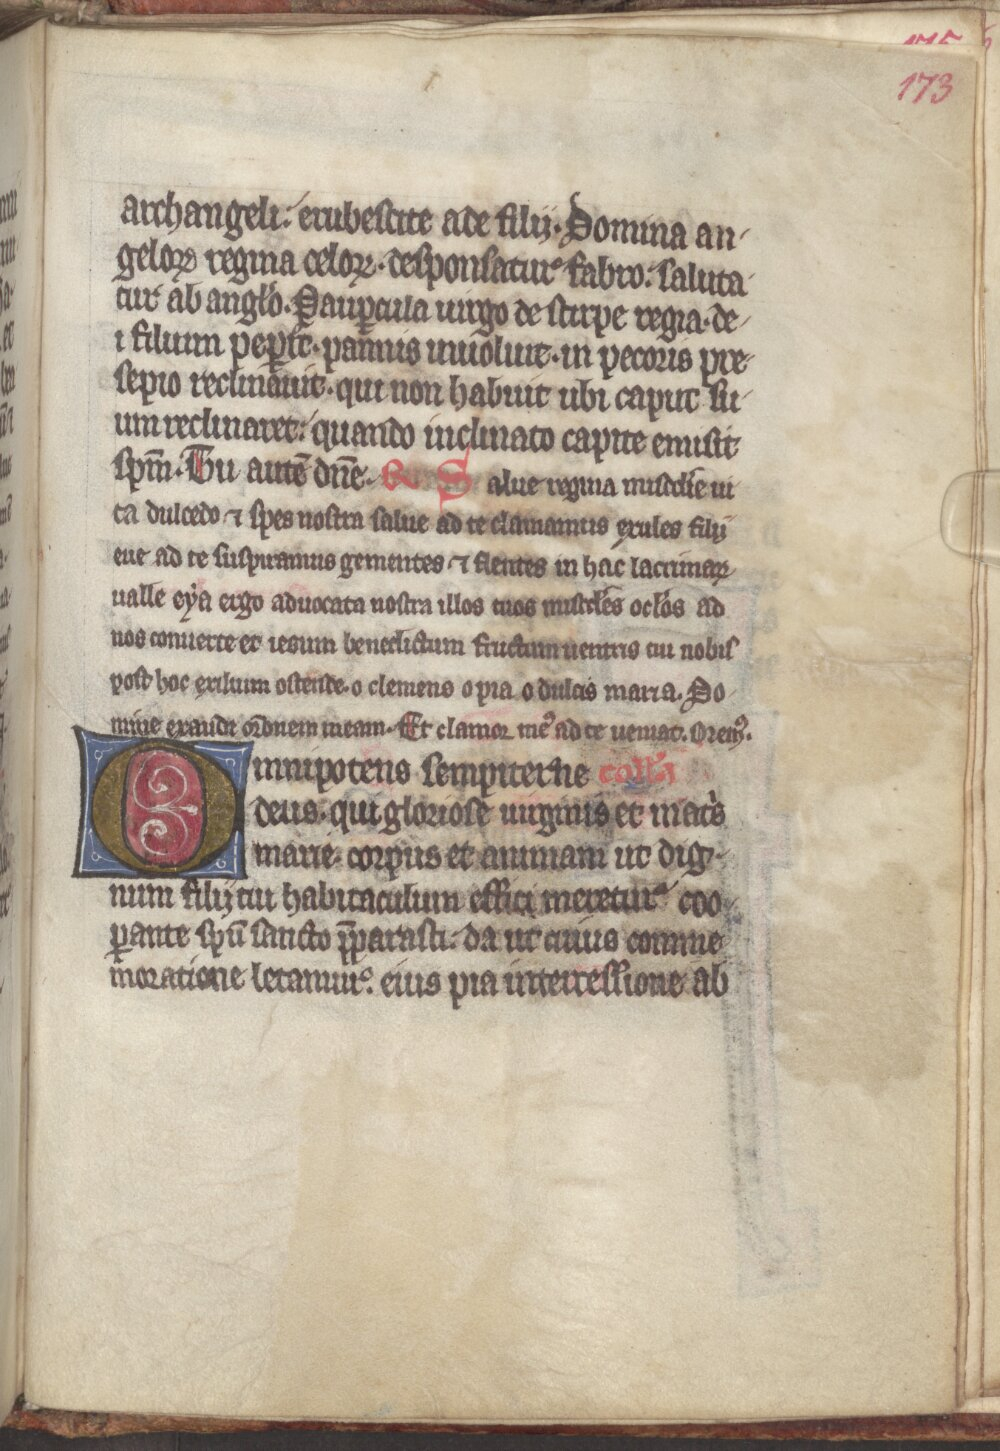 173
archangeli. erubescite ade filij. Domina an-
geloꝝ regina celoꝝ. desponsatur fabro. saluta-
tur ab angl̓o. Paup̱cula uirgo de stirpe regia. de-
i filium pep̱it. pannis inuoluit. in pecoris pre-
sepio reclinauit. qui non habuit ubi caput su-
um reclinaret. quando inclinato capite emisit
sp̄m. Tu autē dn̄e. R Salue regina misc̄die ui
ta dulcedo ⁊ spes nostra salue ad te clamamus exules filij
eue ad te suspiramus gementes ⁊ flentes in hac lacrimaꝝ
ualle eya ergo aduocata nostra illos tuos misc̄des oc̄los ad
nos conuerte et iesum benedictum fructum uentris tui nobis
post hoc exilium ostende. o clemens o pia o dulcis maria. Do-
mine exaudi or̄onem meam. Et clamor meꝰ ad te ueniat. Oremꝰ.
Omnipotens sempiterne coll̄a
deus. qui gloriose uirginis et mat̓s
marie corpus et animam ut dig-
num filij tui habitaculum effici meretur coo-
p̱ante sp̄u sancto p̄parasti. da ut cuius comme-
moratione letamur. eius pia intercessione ab